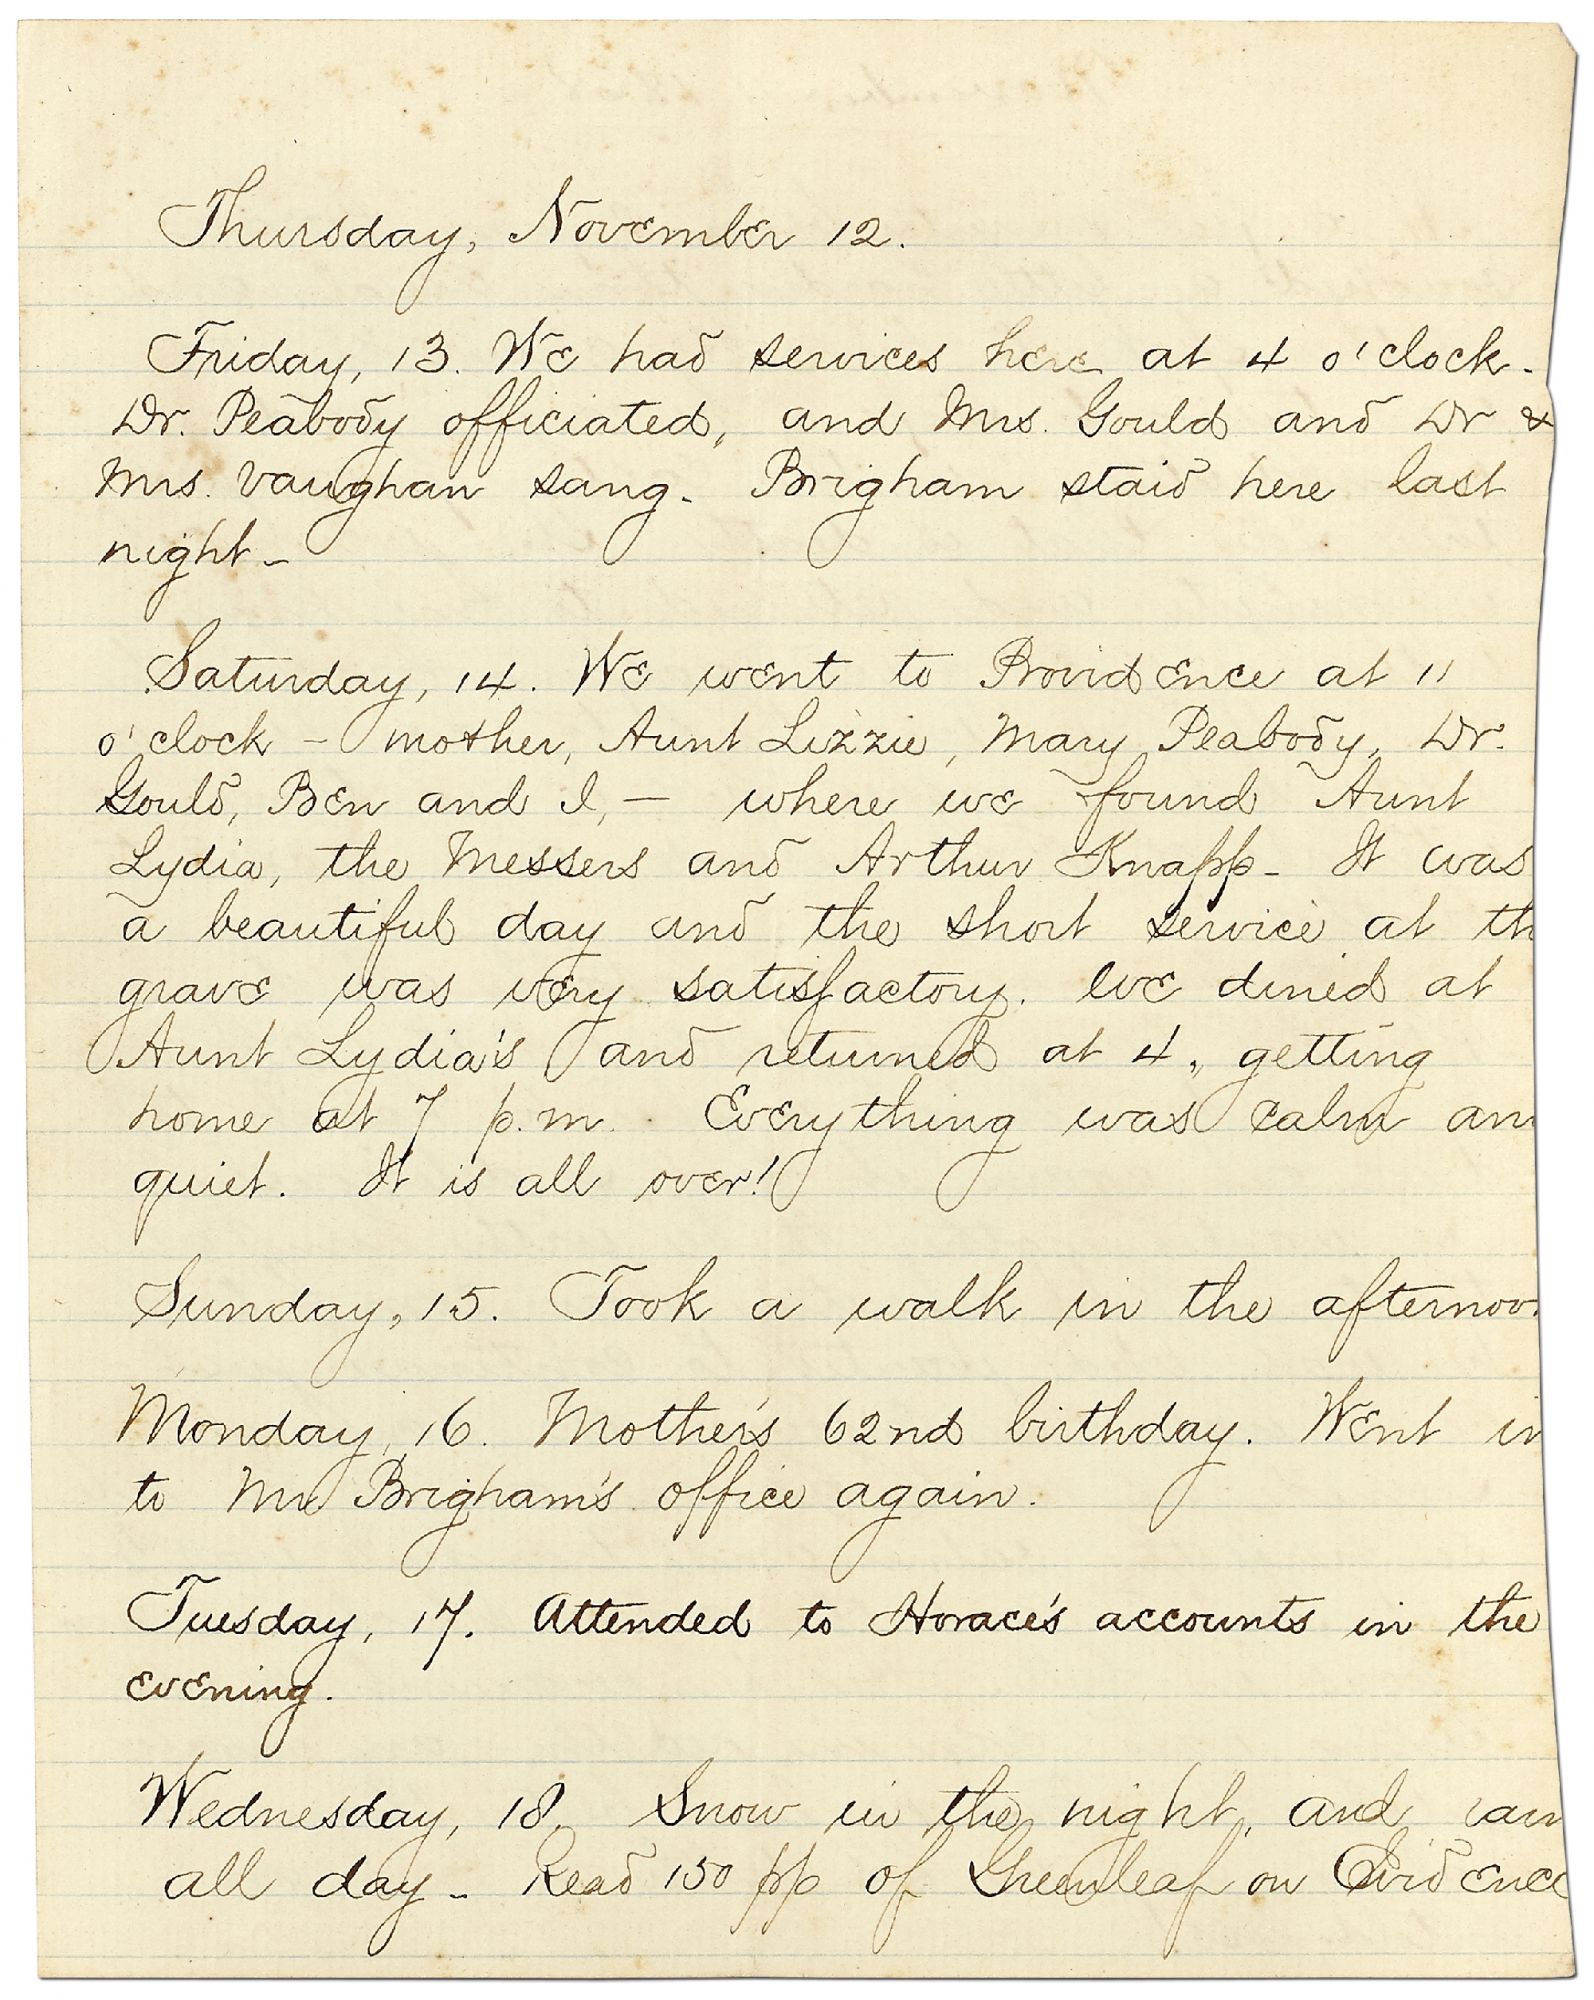 Thursday, November 12.
Friday, 13. We had services here at 4 o'clock.
Dr. Peabody officiated, and Mrs. Gould and Dr &
Mrs. Vaughan sang. Brigham staid here last
night -
Saturday, 14. We went to Providence at 11
o'clock - mother, Aunt Lizzie, Mary Peabody, Dr.
Gould, Ben and I, - where we found Aunt
Lydia, the Messers and Arthur Knapp - It was
a beautiful day and the short service at th
grave was very satisfactory. We dined at
Aunt Lydia's and returned at 4, getting
home at 7 p.m. Everything was calm an
quiet. It is all over!
Sunday, 15. Took a walk in the afternoo
Monday, 16. Mother's 62nd birthday. Went in
to Mr Brigham's office again.
Tuesday, 17. Attended to Horace's accounts in the
evening.
Wednesday, 18. Snow in the night, and rain
all day - Read 150 pp of Greenleaf on Evidence